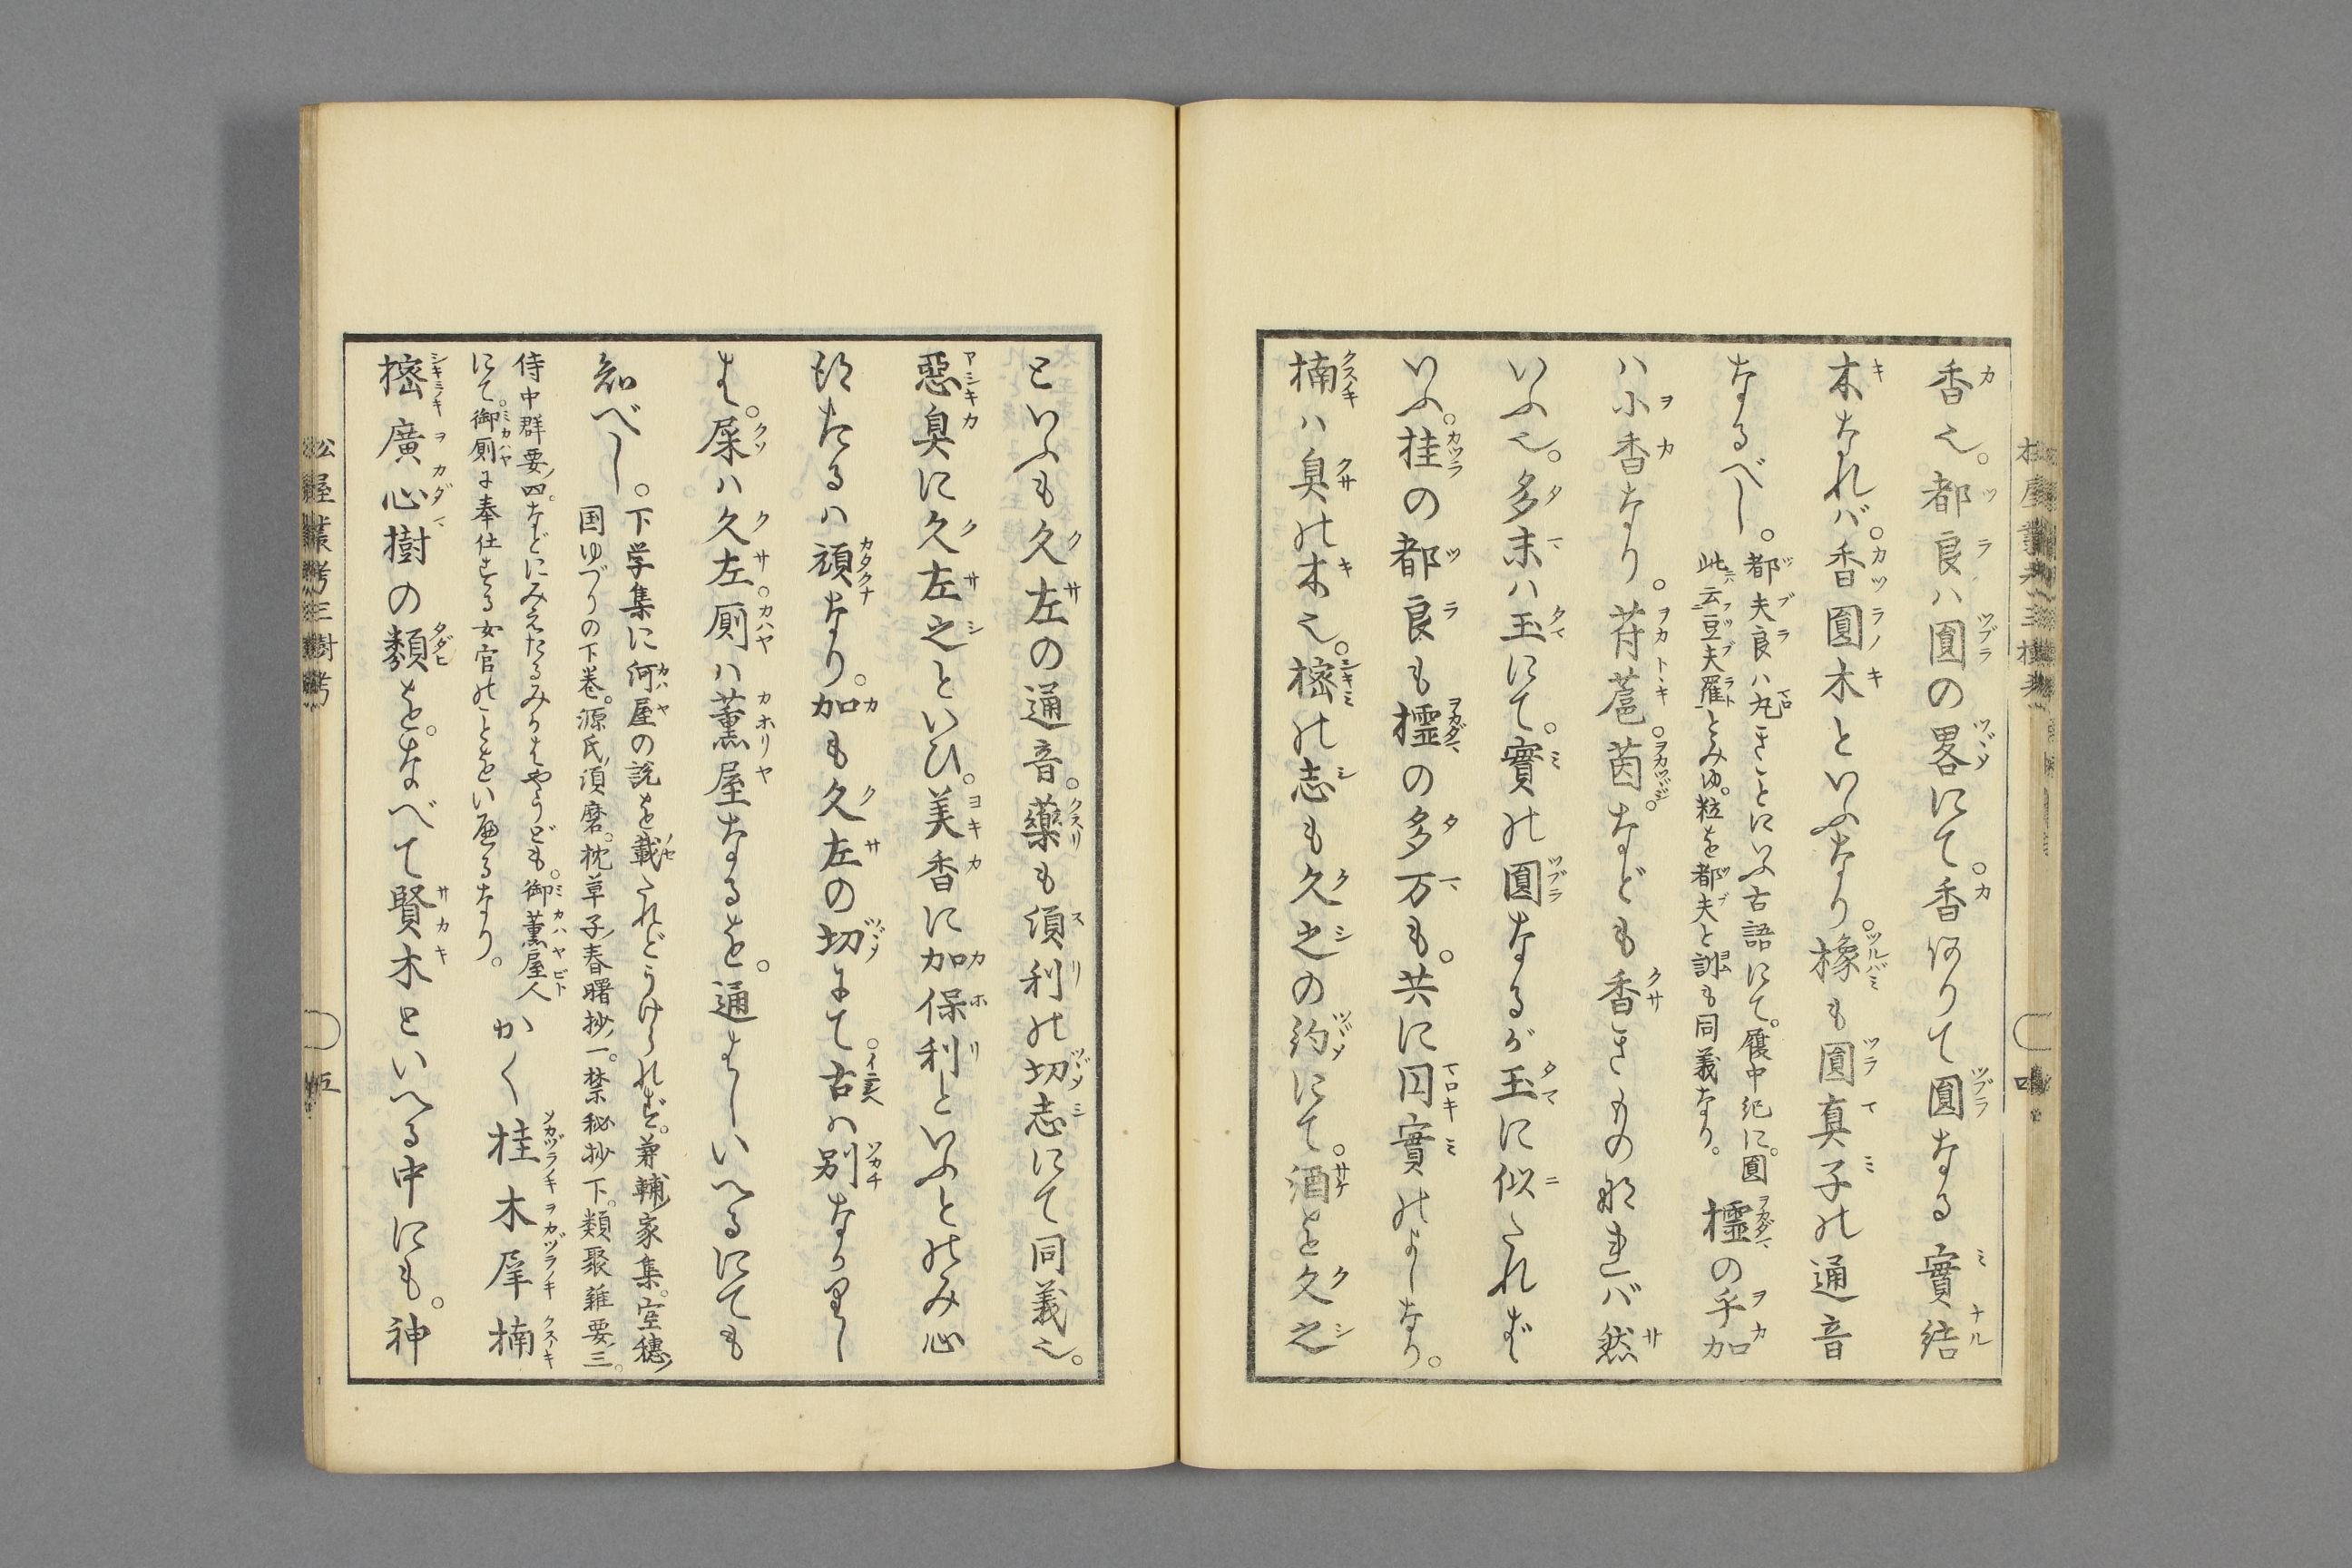 香也。都良ハ圓の畧にて。香何りて圓なる實結
木なれバ。香圓木といふなり。橡も圓真子の通音
なるべし。
都夫良ハ丸きことにいふ古語にて。履中紀に。圓
此云豆夫羅とみゆ。粒を都夫と訓も同義なり。
橿の乎加
ハ小香なり。苻蓲。茵。などもも香きもの那連バ然
いふ也。多末ハ玉にて。實の圓なるが玉に似たれば
いふ。桂の都良も橿の多万も。共に円實のよしなり。
楠ハ臭の木也。樒の志も久之の約にて。酒を久之
といふも久左の通音。藥も須利の切志にて同義也。
惡臭に久左之といひ。美香に加保利といふとのみ心
得たるハ頑なり。加も久左の切にて古ハ別なかりし
を。屎ハ久左。厠ハ薫屋なるを。通はしいへるにても
知べし。
下学集に何屋の説を載たれどうけられず。兼輔家集。空穂
国ゆづりの下巻。源氏須磨。枕草子春曙抄一。禁秘抄下。類聚雜要三。
侍中群要四。などにみえたるみかはやうども。御薫屋人
にて。御厠に奉仕する女官のことをいへるなり。
かく桂木犀楠
樒廣心樹の類を。なべて賢木といへる中にも。神
松屋叢考三樹考
五